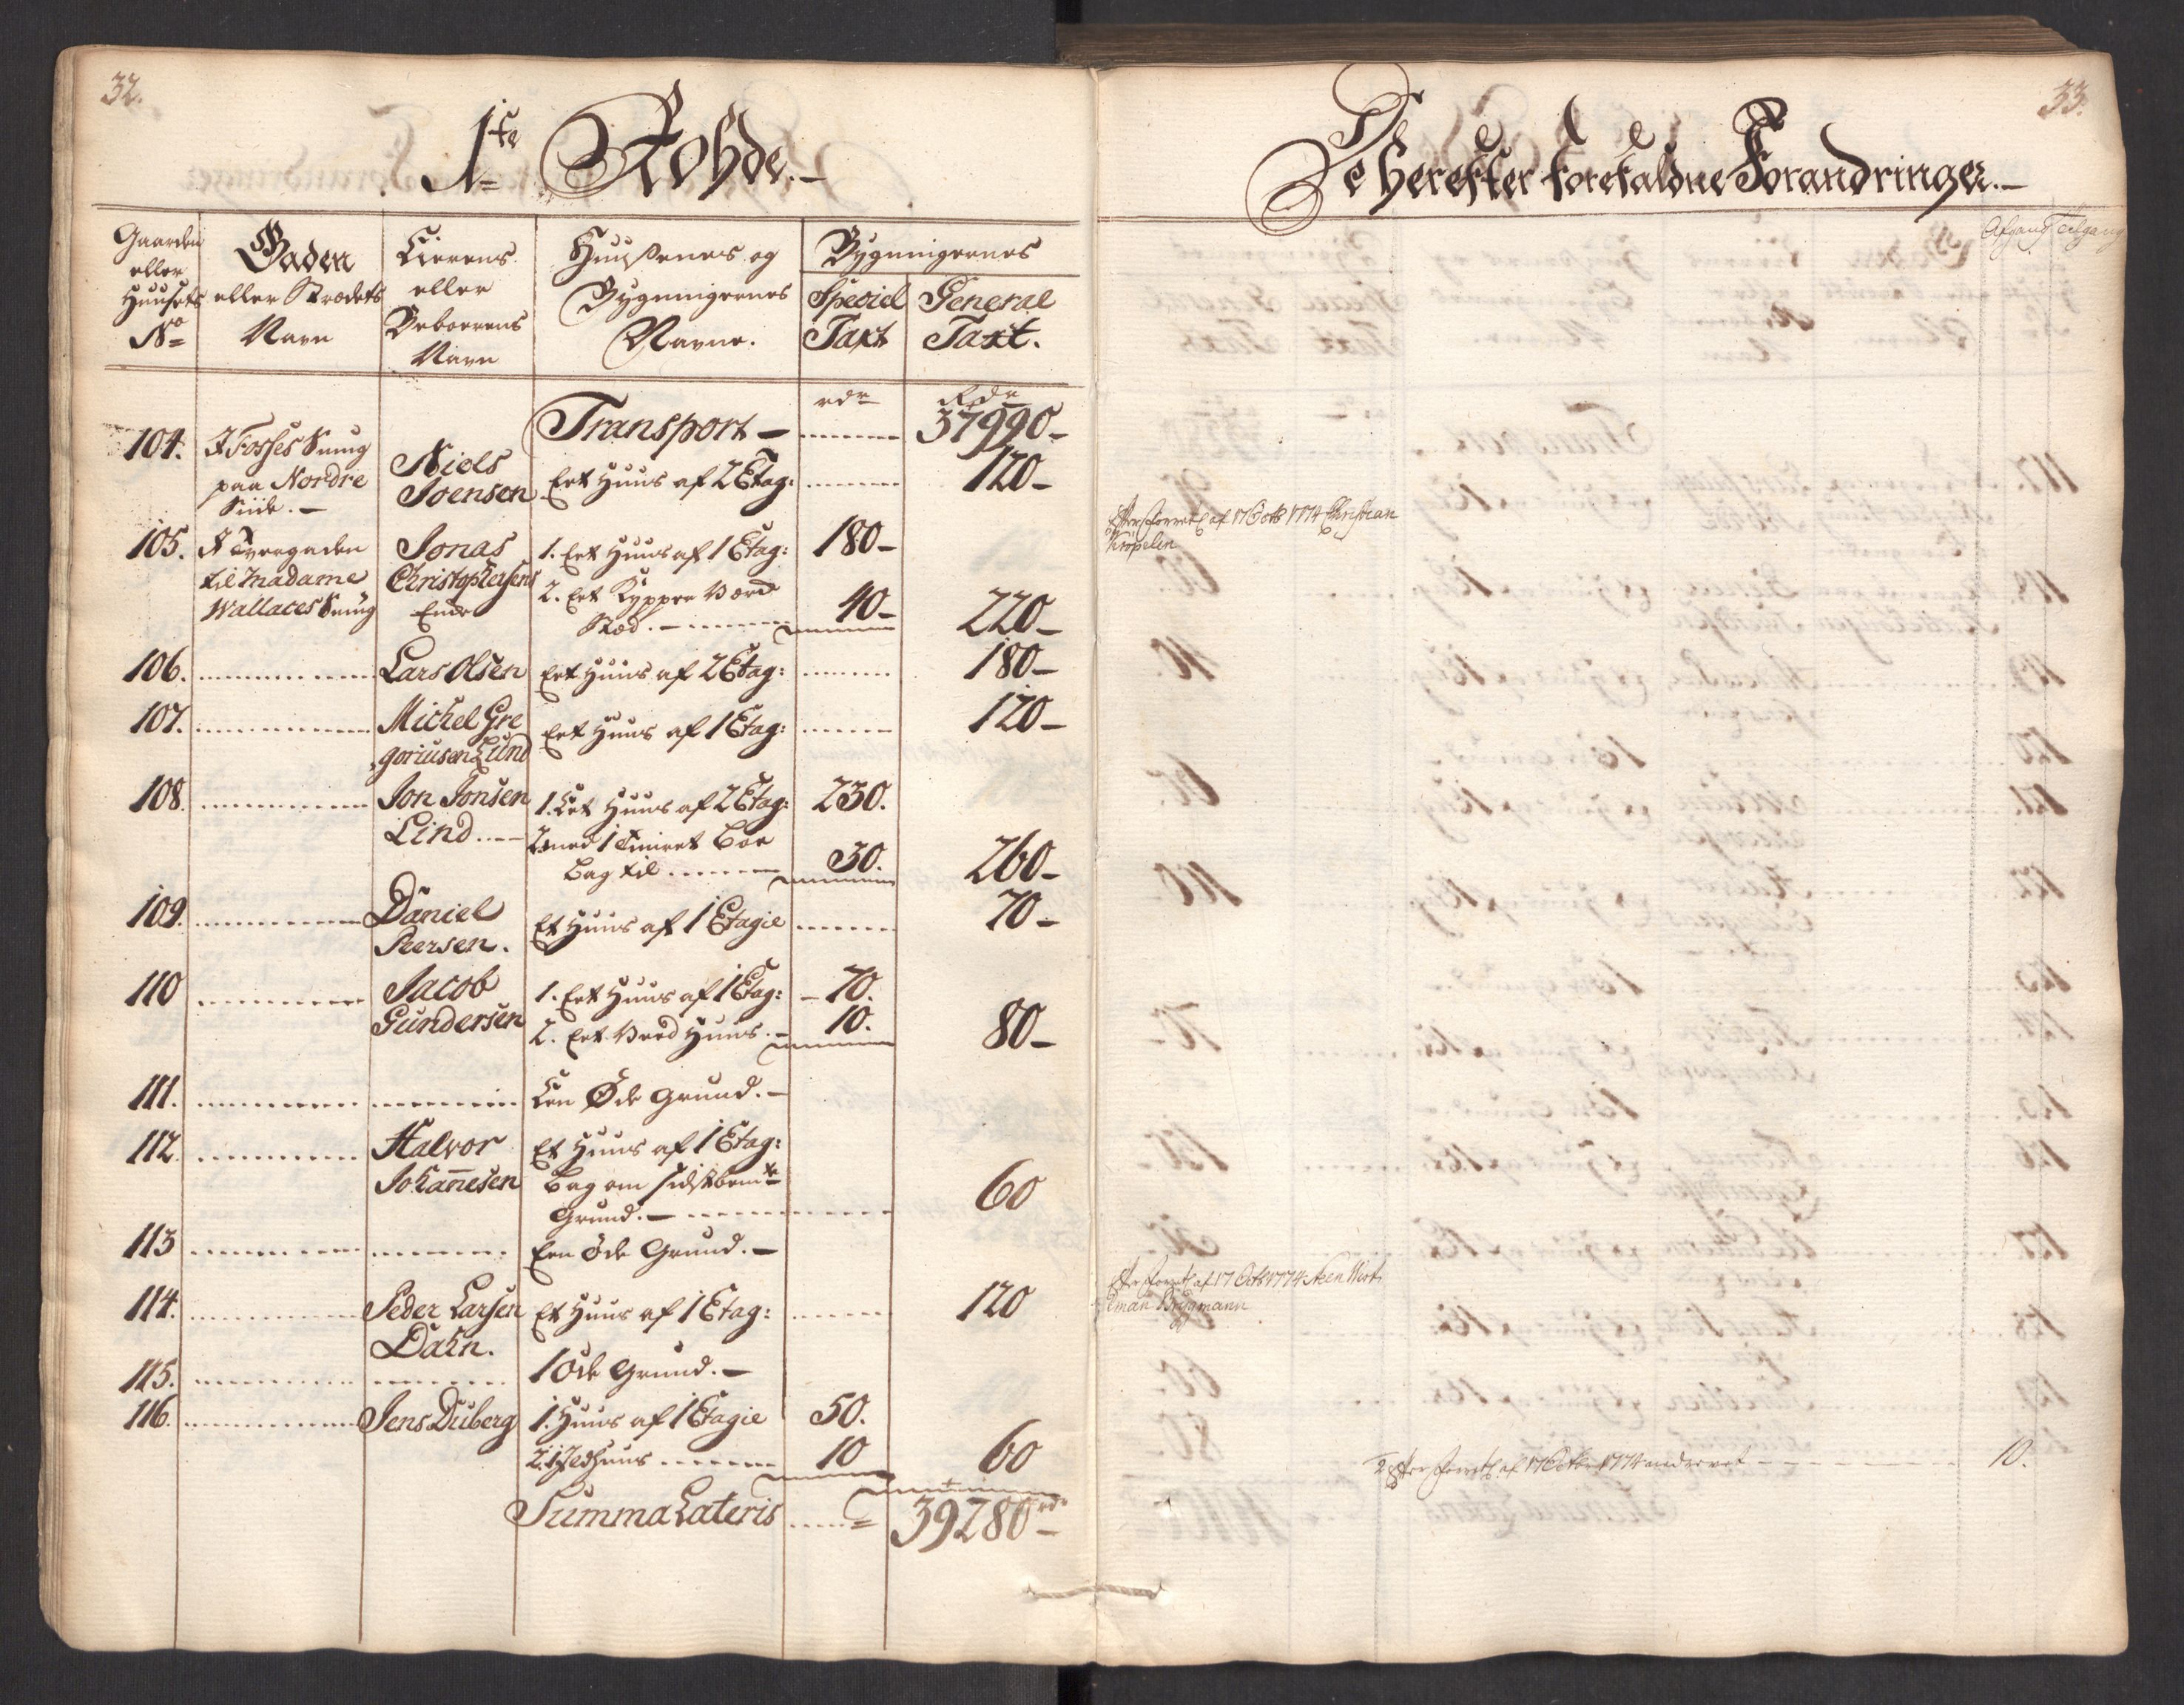 32.
1te Rohde.
Gaarden eller Huusets No
Gaden eller Strædets Navn
Eierens eller Beboerens Navn
Huusenes og Bygningernes Navne.
Bygningernes
Speciel Taxt
General Taxt.
rdr Rdr
Transport - 37990-
104. I Fosses Smug paa Nordre Siide. - Niels Joensen Eet Huus af 2 Etag: 120-
105. I Tvergaden til Madame Wallaces Smug Jonas Christophersens Enke 1. Eet Huus af 1 Etag: 180-
2. Eet Kyppere Værd Stæd. - 40- 220-
106. Lars Olsen Eet Huus af 2 Etag: 180-
107. Michel Gregoriusen Lund Eet Huus af 1 Etag: 120-
108. Jon Jonsen Lind 1. Eet Huus af 2 Etag: 230.
2. med 1 Boe Bag til 30. 260-
109. Daniel Persen. Et Huus af 1 Etagie 70-
110 Jacob Gundersen 1. Eet Huus af 1 Etag: - 70.
2. Eet Veed Huus. - 10. 80-
111. Een Øde Grund. -
112. Halvor Johannesen Et Huus af 1 Etag:
Bag om sidstbemte
Grund. - 60
113 Een öde Grund. -
114. Peder Larsen Dahn. Et Huus af 1 Etag: 120
115. 1 Öde Grund. -
116. Jens Duberg 1. Huus af 1 Etagie 50.
2. 1 Ildhuus 10 60
Summa Lateris = 39280 rdr
33.
De herefter forefaldne Forandringer. -
Afgang Tilgang
Efter Forretn af 17 Octb 1774 Christian
Kröpelin
Efter Forretn af 17 Octb 1774 Steen Wirt
man Brugmann
2 Efter Forretn af 17 Octbr 1774 nedrevet - 10.